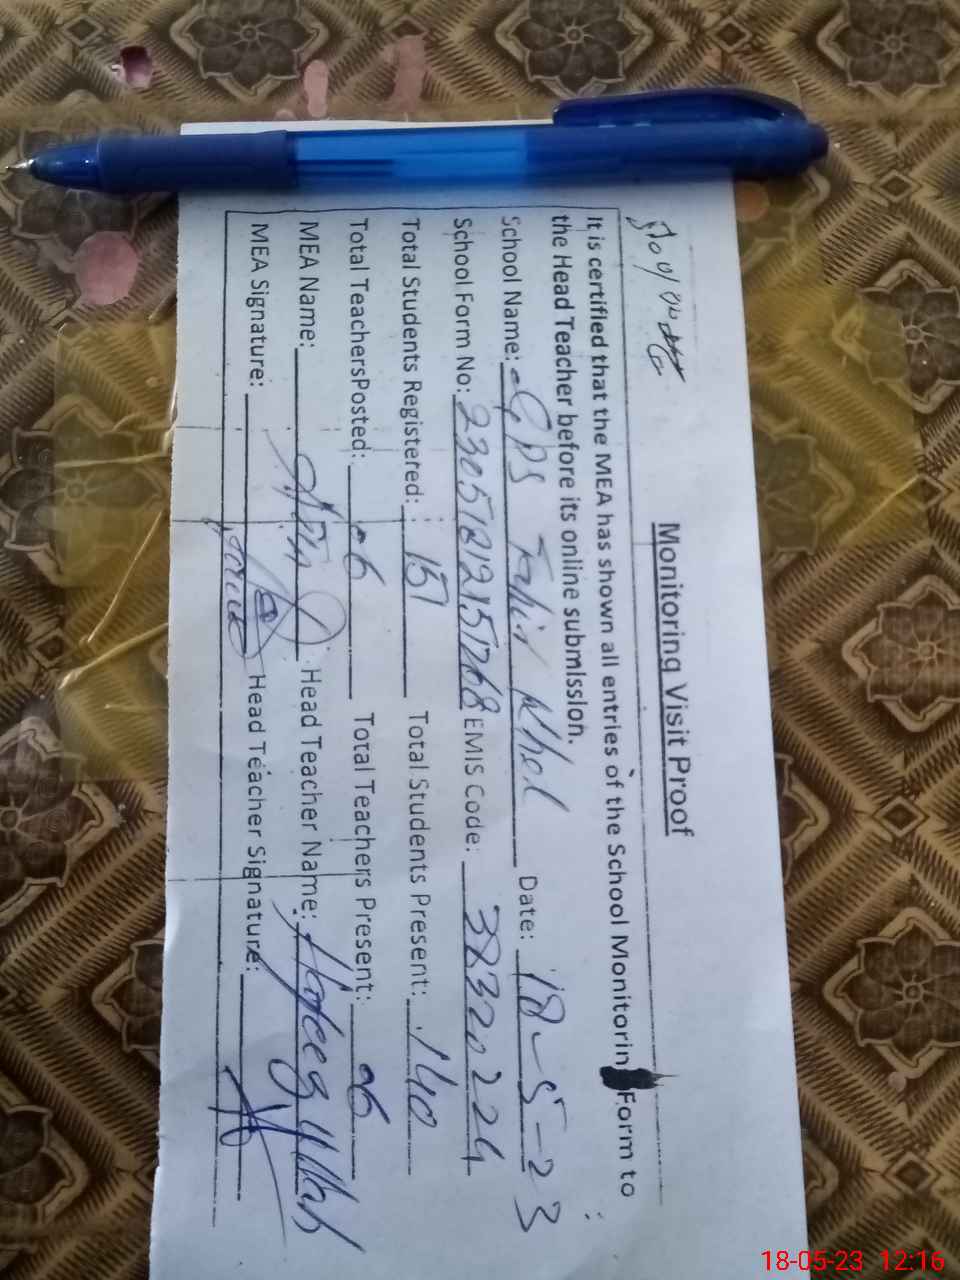 Monitoring Visit Proof
It is certified that the MEA has shown all entries of the School Monitorin Form to
the Head Teacher before its online submission.
School Name: GPS Khel Date: 18-5-23
School Form No: EMIS Code: 38320224
Total Students Registered: 151 Total Students Present: 140
Total TeachersPosted: 06 Total Teachers Present: 06
MEA Name: Head Teacher Name: Hafeez Ullah
MEA Signature: Head Teacher Signature:
18-05-23 12:16